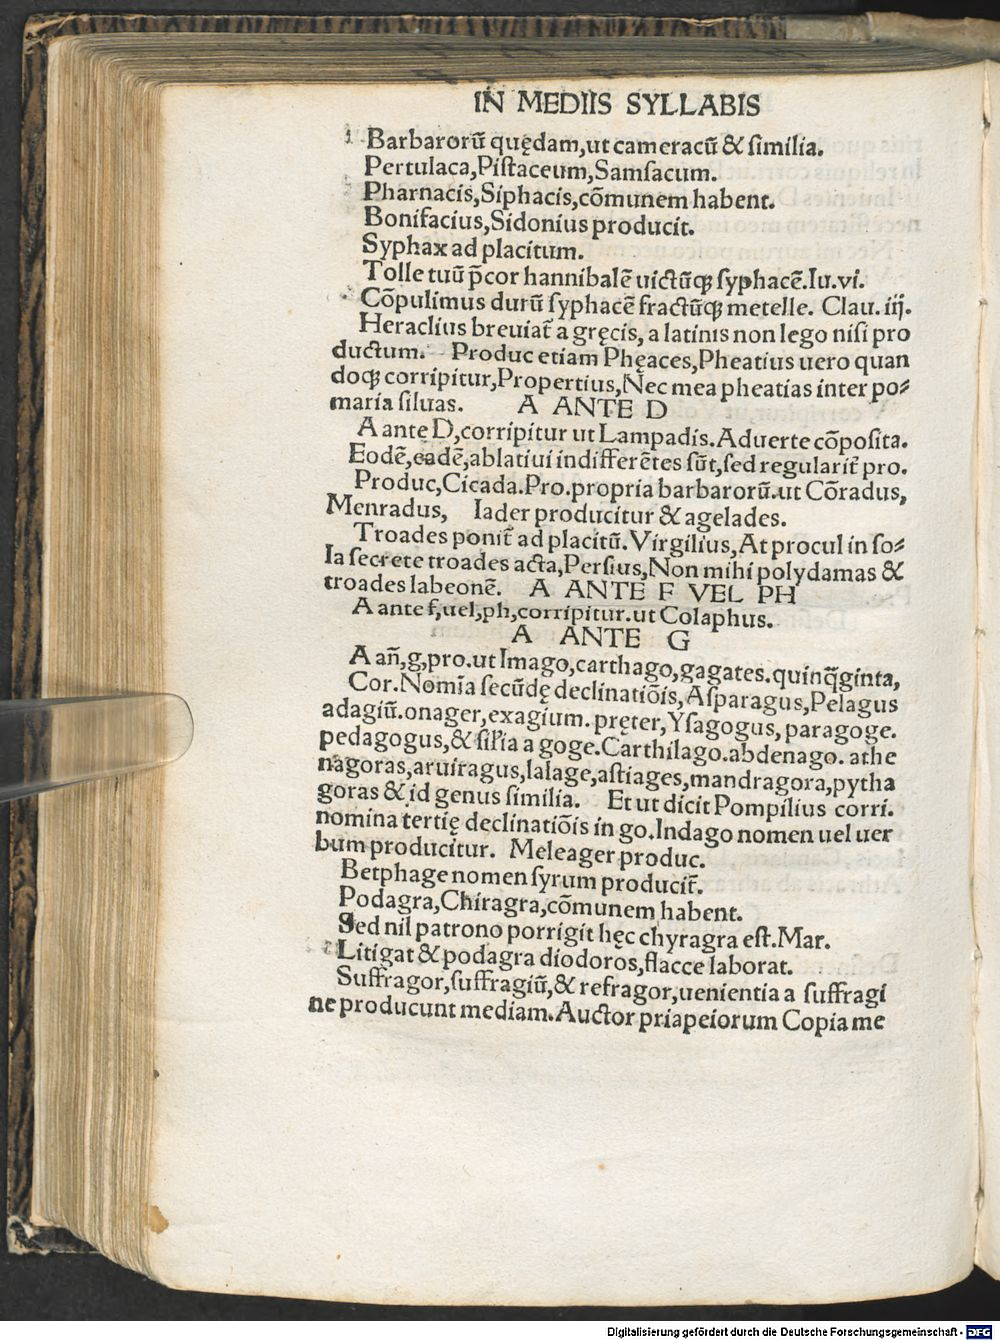 IN MEDIIS SYLLABIS
Barbarorū quędam,ut cameracū & similia.
Pertulaca,Pistaceum,Samsacum.
Pharnacis,Siphacis,cōmunem habent.
Bonifacius,Sidonius producit.
Syphax ad placitum.
Tolle tuū p̄cor hannibalē uictūqꝫ syphacē.Iu.vi.
Cōpulimus durū syphacē fractūqꝫ metelle. Clau. iij.
Heraclius breuiat̄ a gręcis, a latinis non lego nisi pro
ductum. Produc etiam Phęaces,Pheatius uero quan
doqꝫ corripitur,Propertius,Nec mea pheatias inter po⸗
maria siluas. A ANTE D
A ante D,corripitur ut Lampadis.Aduerte cōposita.
Eodē,eadē,ablatiui indifferētes sūt,sed regularit̄ pro.
Produc,Cicada.Pro.propria barbarorū.ut Cōradus,
Menradus, Iader producitur & agelades.
Troades ponit̄ ad placitū.Virgilius,At procul in so⸗
la secrete troades acta,Persius,Non mihi polydamas &
troades labeonē. A ANTE F VEL PH
A ante f,uel,ph,corripitur.ut Colaphus.
A ANTE G
A an̄,g,pro.ut Imago,carthago,gagates.quinq̄ginta,
Cor.Nomīa secūdę declinatiōis,Asparagus,Pelagus
adagiū.onager,exagium.pręter,Ysagogus,paragoge.
pedagogus,& sil'ia a goge.Carthilago.abdenago. athe
nagoras,aruiragus,lalage,astiages,mandragora,pytha
goras & id genus similia. Et ut dicit Pompilius corri.
nomina tertię declinatiōis in go.Indago nomen uel uer
bum producitur. Meleager produc.
Betphage nomen syrum producit̄.
Podagra,Chiragra,cōmunem habent.
Sed nil patrono porrigit hęc chyragra est.Mar.
Litigat & podagra diodoros,flacce laborat.
Suffragor,suffragiū,& refragor,uenientia a suffragi
ne producunt mediam.Auctor priapeiorum Copia me
Digitalisierung gefördert durch die Deutsche Forschungsgemeinschaft - DFG